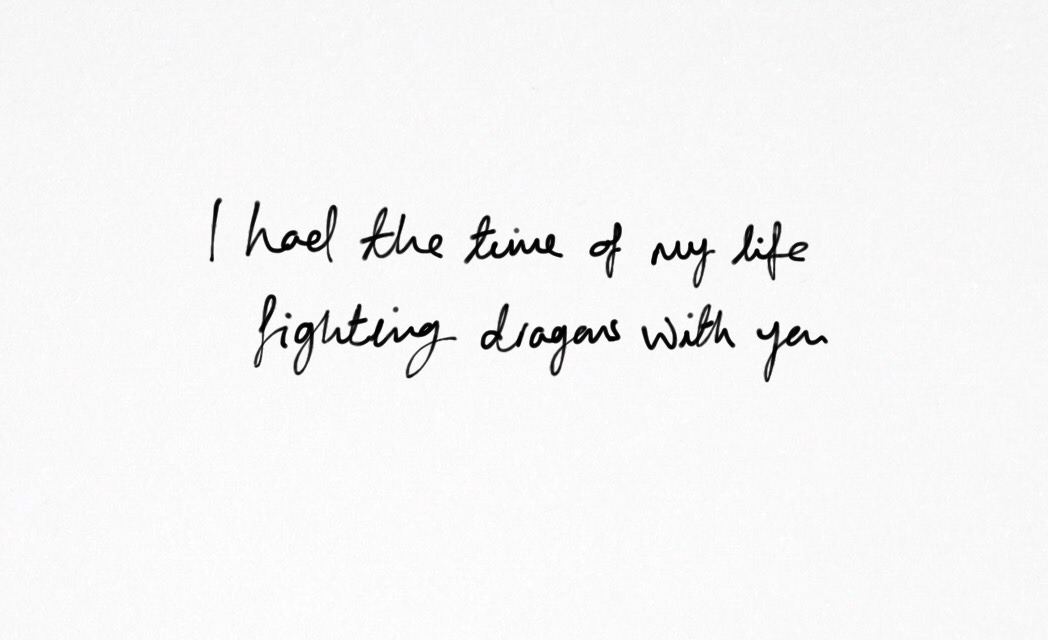 I had the time of my life
fighting dragons with you